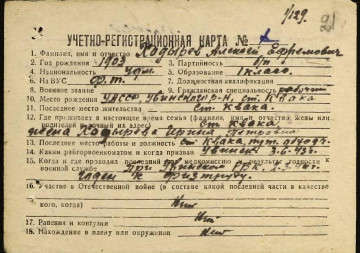 1/129.
УЧЕТНО-РЕГИСТРАЦИОННАЯ КАРТА №
1. Фамилия, имя и отчество Ходырев Алексей Ефремович
2. Год рождения 1903 3. Партийность б/п
4. Национальность 5. Образование 1 класс.
6. На ВУС 7. Должностная квалификация
8. Военное звание 9. Гражданская специальность рабочий
10. Место рождения УАССР ст. Квака
11. Последнее место жительства ст. Квака
12. Где проживает в настоящее время семья (фамилия, имя и отчество жены или
родителей и точный их адрес) ст. Квака
жена Ходырева Ирина Петровна
13. Последнее место работы и должность ст. Квака,
14. Каким райгорвоенкоматом и когда призван 3.6.43г.
15. Когда и где проходил последний раз медкомиссию и результат годности к
военной службе
годен к физтруду.
16. Участие в Отечественной войне (в составе какой последней части в качестве
кого, когда) Нет
17. Ранения и контузии Нет
18. Нахождение в плену или окружении нет